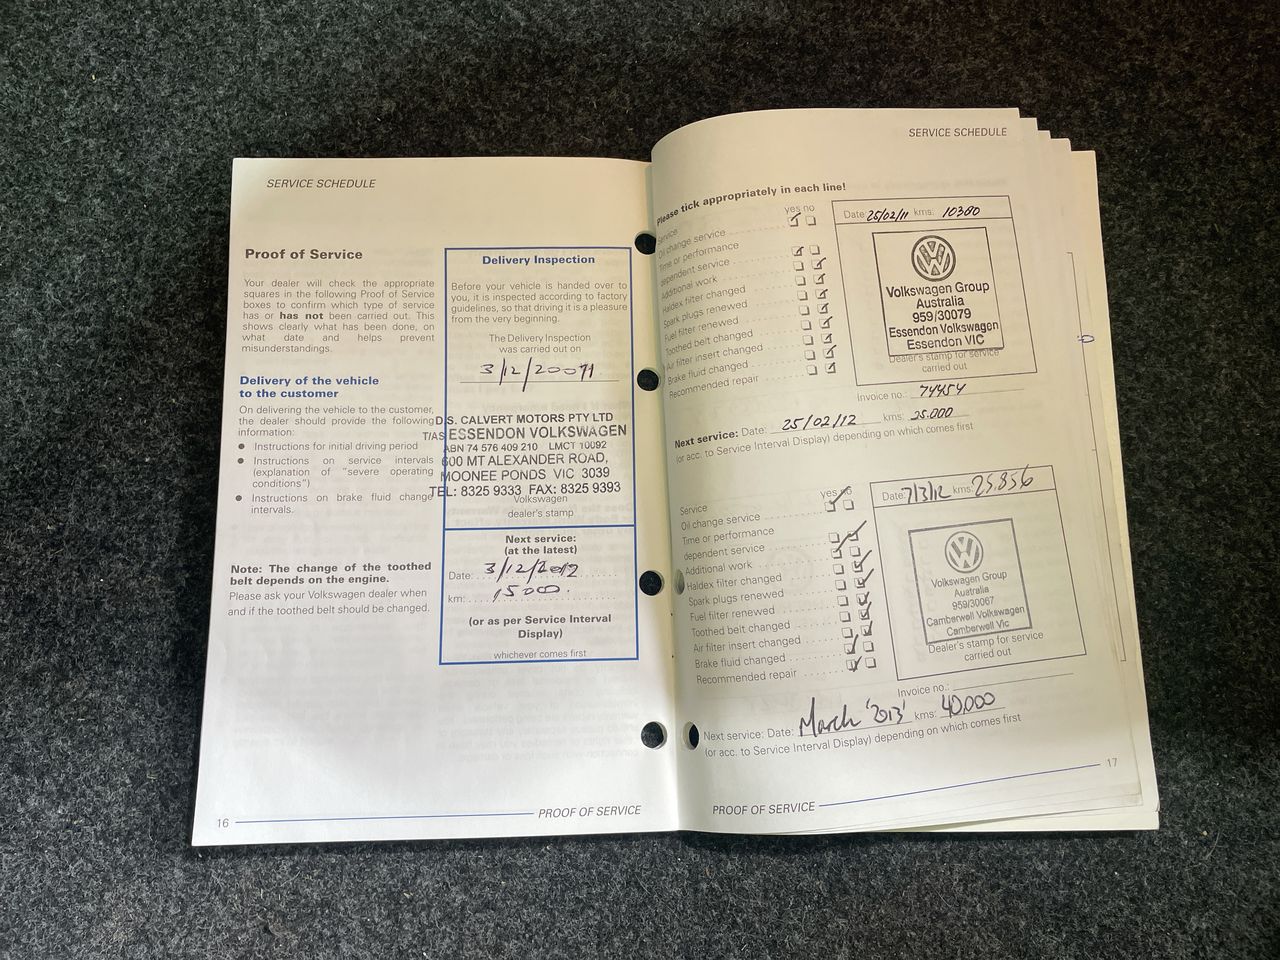 SERVICE SCHEDULE
Proof of Service
Your dealer will check the appropriate
squares in the following Proof of Service
boxes to confirm which type of service
has or has not been carried out. This
shows clearly what has been done, on
what date and helps prevent
misunderstandings.
Delivery of the vehicle
to the customer
On delivering the vehicle to the customer,
the dealer should provide the following
information:
● Instructions for initial driving period
● Instructions on service intervals
(explanation of "severe operating
conditions")
● Instructions on brake fluid change
intervals.
Note: The change of the toothed
belt depends on the engine.
Please ask your Volkswagen dealer when
and if the toothed belt should be changed.
Delivery Inspection
Before your vehicle is handed over to
you, it is inspected according to factory
guidelines, so that driving it is a pleasure
from the very beginning.
The Delivery Inspection
was carried out on
3/12/20
D.S. CALVERT MOTORS PTY LTD
T/AS ESSENDON VOLKSWAGEN
ABN 74 576 409 210 LMCT 10092
600 MT ALEXANDER ROAD,
MOONEE PONDS VIC 3039
TEL: 8325 9333 FAX: 8325 9393
Volkswagen
dealer's stamp
Next service:
(at the latest)
Date: 3/12/
km: 15000.
(or as per Service Interval
Display)
whichever comes first
16 PROOF OF SERVICE
SERVICE SCHEDULE
Please tick appropriately in each line!
yes no
Service
Oil change service
Time or performance
dependent service
Additional work
Haldex filter changed
Spark plugs renewed
Fuel filter renewed
Toothed belt changed
Air filter insert changed
Brake fluid changed
Recommended repair
Date: 25/02/11 kms: 10380
Volkswagen Group
Australia
959/30079
Essendon Volkswagen
Essendon VIC
Dealer's stamp for service
carried out
Invoice no.: 74454
Next service: Date: 25/02/12 kms: 25.000
(or acc. to Service Interval Display) depending on which comes first
yes no
Service
Oil change service
Time or performance
dependent service
Additional work
Haldex filter changed
Spark plugs renewed
Fuel filter renewed
Toothed belt changed
Air filter insert changed
Brake fluid changed
Recommended repair
Date: 7/3/12 kms: 25856
Volkswagen Group
Australia
959/30067
Camberwell Volkswagen
Camberwell Vic
Dealer's stamp for service
carried out
Invoice no.:
Next service: Date: March '2013' kms: 40.000
(or acc. to Service Interval Display) depending on which comes first
PROOF OF SERVICE 17